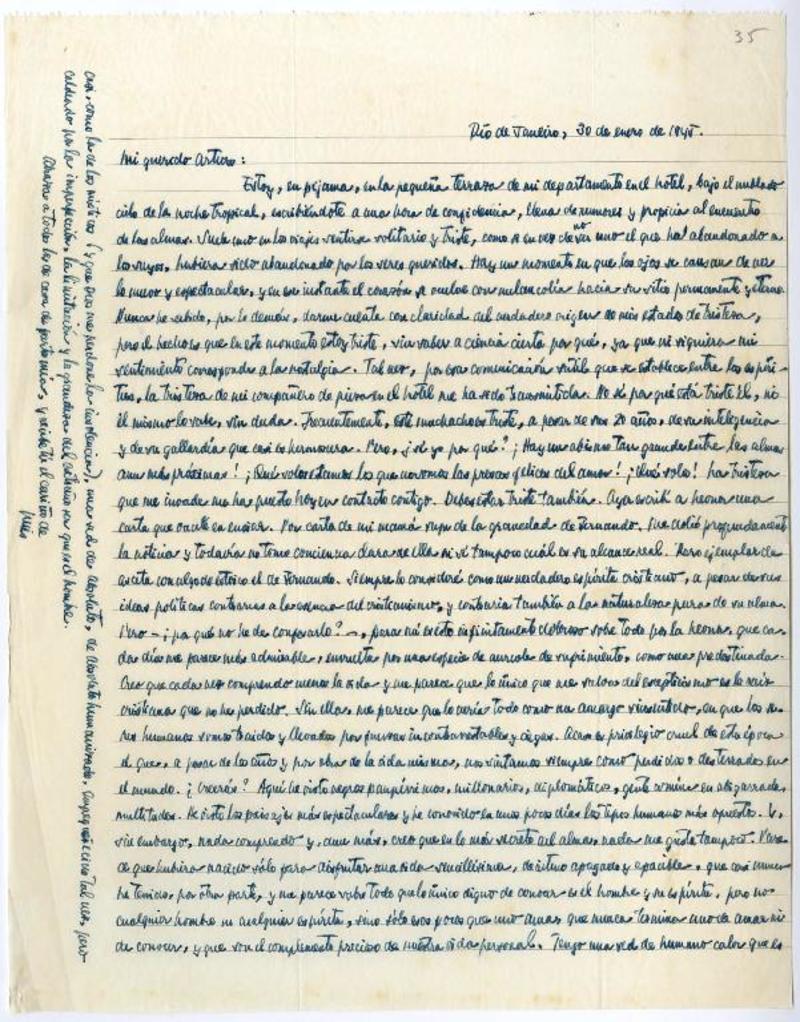 35
Río de Janeiro, 30 de enero de 1945.
Mi querido Arturo:
Estoy, en pijama, en la pequeña terraza de mi departamento en el hotel, bajo el nublado
cielo de la noche tropical, escribiéndote a una hora de confidencia, llena de rumores y propicia al encuentro
de las almas. Suele uno en los viajes sentirse solitario y triste, como si en vez de ser uno el que ha abandonado a
los suyos, hubiera sido abandonado por los seres queridos. Hay un momento en que los ojos se cansan de ver
lo nuevo y espectacular, y en ese instante el corazón se vuelve con melancolía hacia su sitio permanente y eterno.
Nunca he sabido, por lo demás, darme cuenta con claridad del verdadero origen de mis estados de tristeza,
pero el hecho es que en este momento estoy triste, sin saber a ciencia cierta por qué, ya que ni siquiera mi
sentimiento corresponde a la nostalgia. Tal vez, por esa comunicación sutil que se establece entre los espíri-
tus, la tristeza de mi compañero de pieza en el hotel me ha sido transmitida. No sé por qué está triste él, ni
él mismo lo sabe, sin duda. Frecuentemente, este muchacho es triste, a pesar de sus 20 años, de su inteligencia
y de su gallardía que casi es hermosura. Pero, ¿sé yo por qué? ¡Hay un abismo tan grande entre las almas
aun más próximas! ¡Qué solos estamos los que no somos las presas felices del amor! ¡Qué solos! La tristeza
que me invade me ha puesto hoy en contacto contigo. Debes estar triste también. Ayer escribí a Leonor una
carta que vacilé en enviar. Por carta de mi mamá supe de la gravedad de Fernando. Me dolió profundamente
la noticia y todavía no tomo conciencia clara de ella ni sé tampoco cuál es su alcance real. Raro ejemplar de
asceta con algo de estoico el de Fernando. Siempre lo consideré como un verdadero espíritu cristiano, a pesar de sus
ideas políticas contrarias a la esencia del cristianismo, y contraria también a la naturaleza pura de su alma.
Pero —¿pa qué no he de confesarlo?—, para mí es esto infinitamente doloroso sobre todo por la Leonor, que ca-
da día me parece más admirable, envuelta por una especie de aureola de sufrimiento, como una predestinada.
Creo que cada vez comprendo menos la vida y me parece que lo único que me salva del escepticismo es la raíz
cristiana que no he perdido. Sin ella, me parece que lo vería todo como un amargo sinsentido, en que los se-
res humanos somos traídos y llevados por fuerzas incontrarrestables y ciegas. Acaso es privilegio cruel de esta época
el que, a pesar de los años y por obra de la vida misma, nos sintamos siempre como perdidos o desterrados en
el mundo. ¿Creerás? Aquí he visto negros paupérrimos, millonarios, diplomáticos, gente común en abigarradas
multitudes. He visto los paisajes más espectaculares y he conocido en unos pocos días los tipos humanos más opuestos. Y,
sin embargo, nada comprendo y, aun más, creo que en lo más secreto del alma, nada me gusta tampoco. Pare-
ce que hubiera nacido sólo para disfrutar una vida sencillísima, de ritmo apagado y apacible, que casi nunca
he tenido, por otra parte, y me parece sobre todo que lo único digno de conocer es el hombre y su espíritu, pero no
cualquier hombre ni cualquier espíritu, sino sólo esos pocos que uno ama, que nunca termina uno de amar ni
de conocer, y que son el complemento preciso de nuestra vida personal. Tengo una sed de humano calor que es
casi como la de los místicos (y que Dios me perdone la insolencia), una sed de absoluto, de absoluto humanizado, empequeñecido tal vez, pero
caldeado por la imperfección, la limitación y la grandeza del extraño ser que es el hombre.
Abrazos a todos los de casa de parte mía, y recibe tú el cariño de
Luis